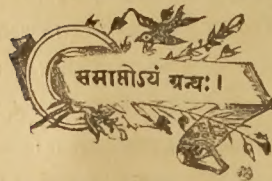 समाप्तोऽयं ग्रन्थः।